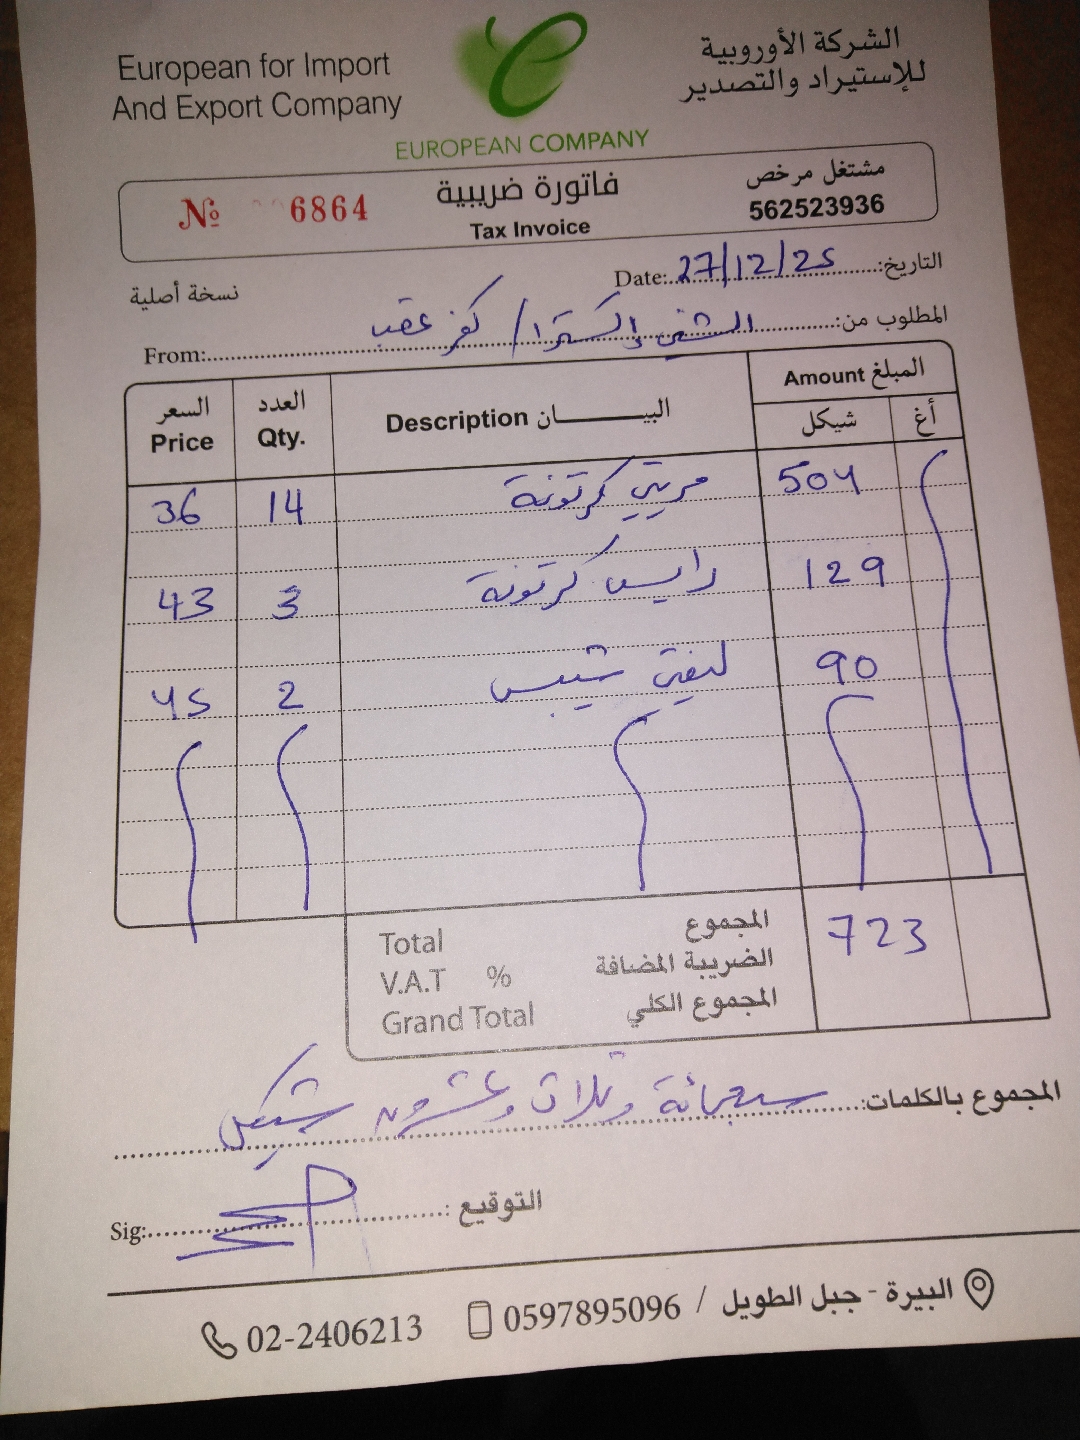 European for Import
And Export Company
الشركة الأوروبية
للإستيراد والتصدير
EUROPEAN COMPANY
№ 6864
فاتورة ضريبية
Tax Invoice
مشتغل مرخص
562523936
نسخة أصلية
Date: 27/12/25 التاريخ:
From: الشني اكسترا / كفر عقب المطلوب من:
السعر العدد البيـــــــان Description المبلغ Amount
Price Qty. شيكل أغ
36 14 كرتونة 504
43 3 رايس كرتونة 129
45 2 شيبس 90
Total المجموع 723
V.A.T % الضريبة المضافة
Grand Total المجموع الكلي
المجموع بالكلمات: سبعمائة وثلاث وعشرون شيكل
Sig: التوقيع:
02-2406213 0597895096 / البيرة - جبل الطويل